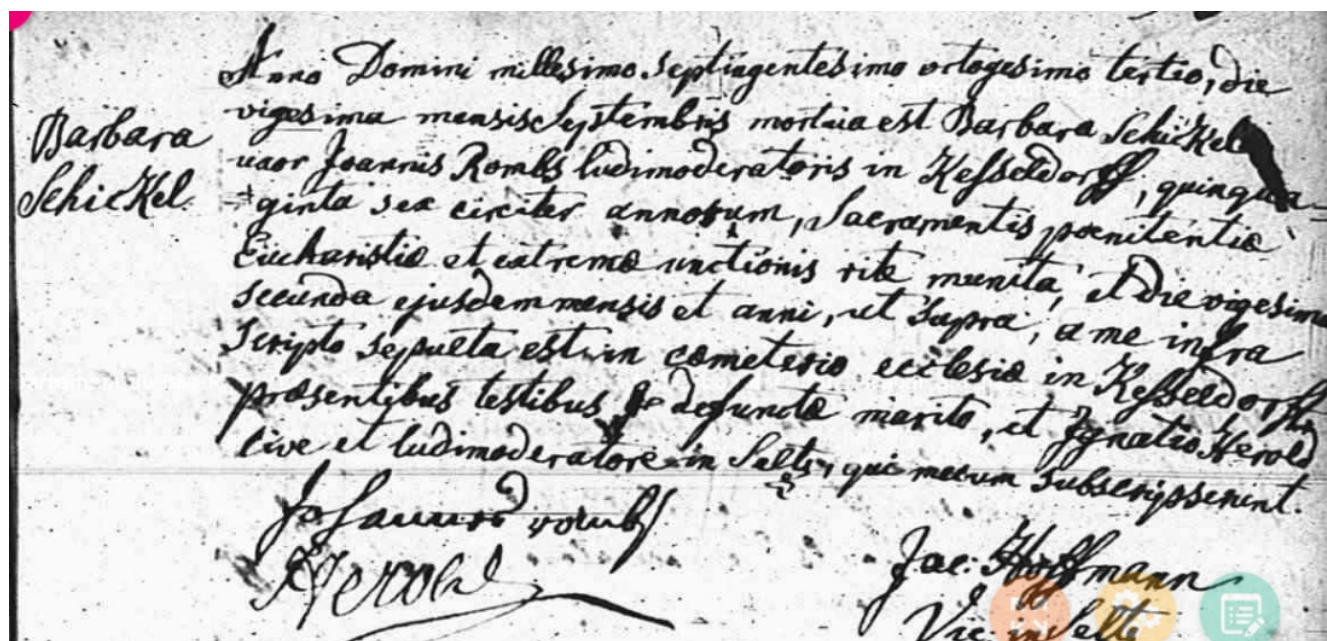 Anno Domini millesimo septingentesimo octogesimo tertio, die
vigesima mensis Septembris mortua est Barbara Schickel
Barbara
Schickel.
uxor Joannis Rombs ludimoderatoris in Kesseldorff, quinqua-
ginta sex circiter annorum, Sacramentis poenitentiæ
Eucharistiæ et extremæ unctionis rite munita, et die vigesima
secunda ejusdem mensis et anni, ut supra, a me infra
Scripto sepulta est in cæmeterio ecclesiæ in Kesseldorff,
præsentibus testibus defunctæ marito, et Ignatio Herold
cive et ludimoderatore in Selts, qui mecum subscripserunt.
Johannes rombs
Herold
Jac: Hoffmann
Vic: in Selts